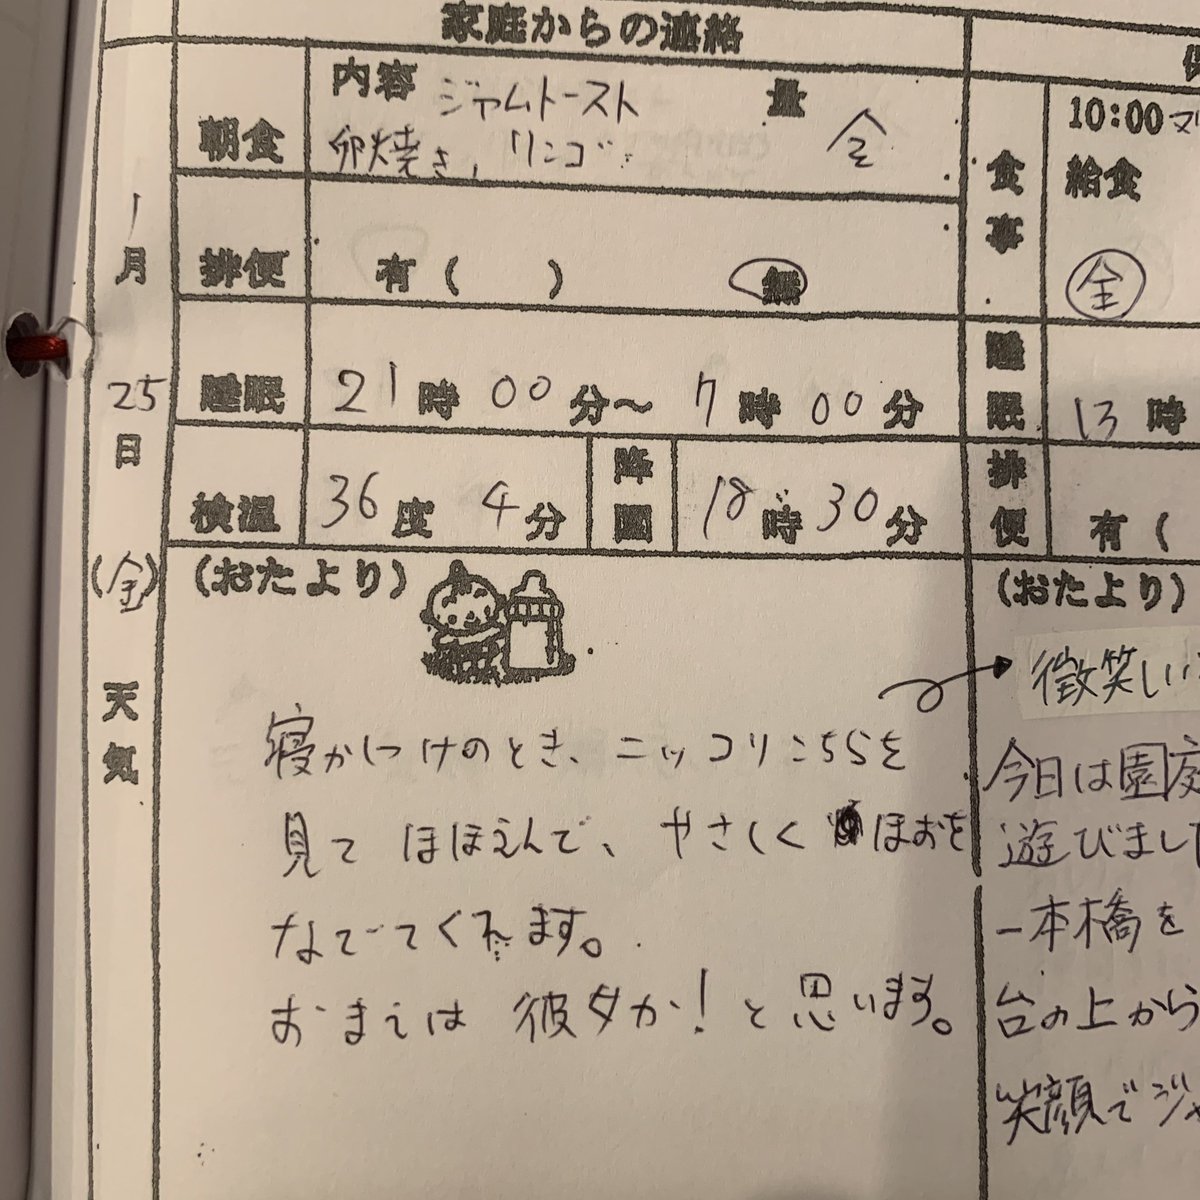 家庭からの連絡
1月25日(金)
天気
朝食
内容 ジャムトースト 量
卵焼き, リンゴ 全
排便 有( ) 無
睡眠 21時00分〜7時00分
検温 36度4分
降園 18時30分
(おたより)
寝かしつけのとき、ニッコリこちらを
見てほほえんで、やさしくほおを
なでてくれます。
おまえは彼女か!と思います。
食事
10:00マリ
給食
全
睡眠 13時
排便 有(
(おたより)
微笑しい
今日は園庭
遊びまし
一本橋を
台の上から
笑顔でジャ